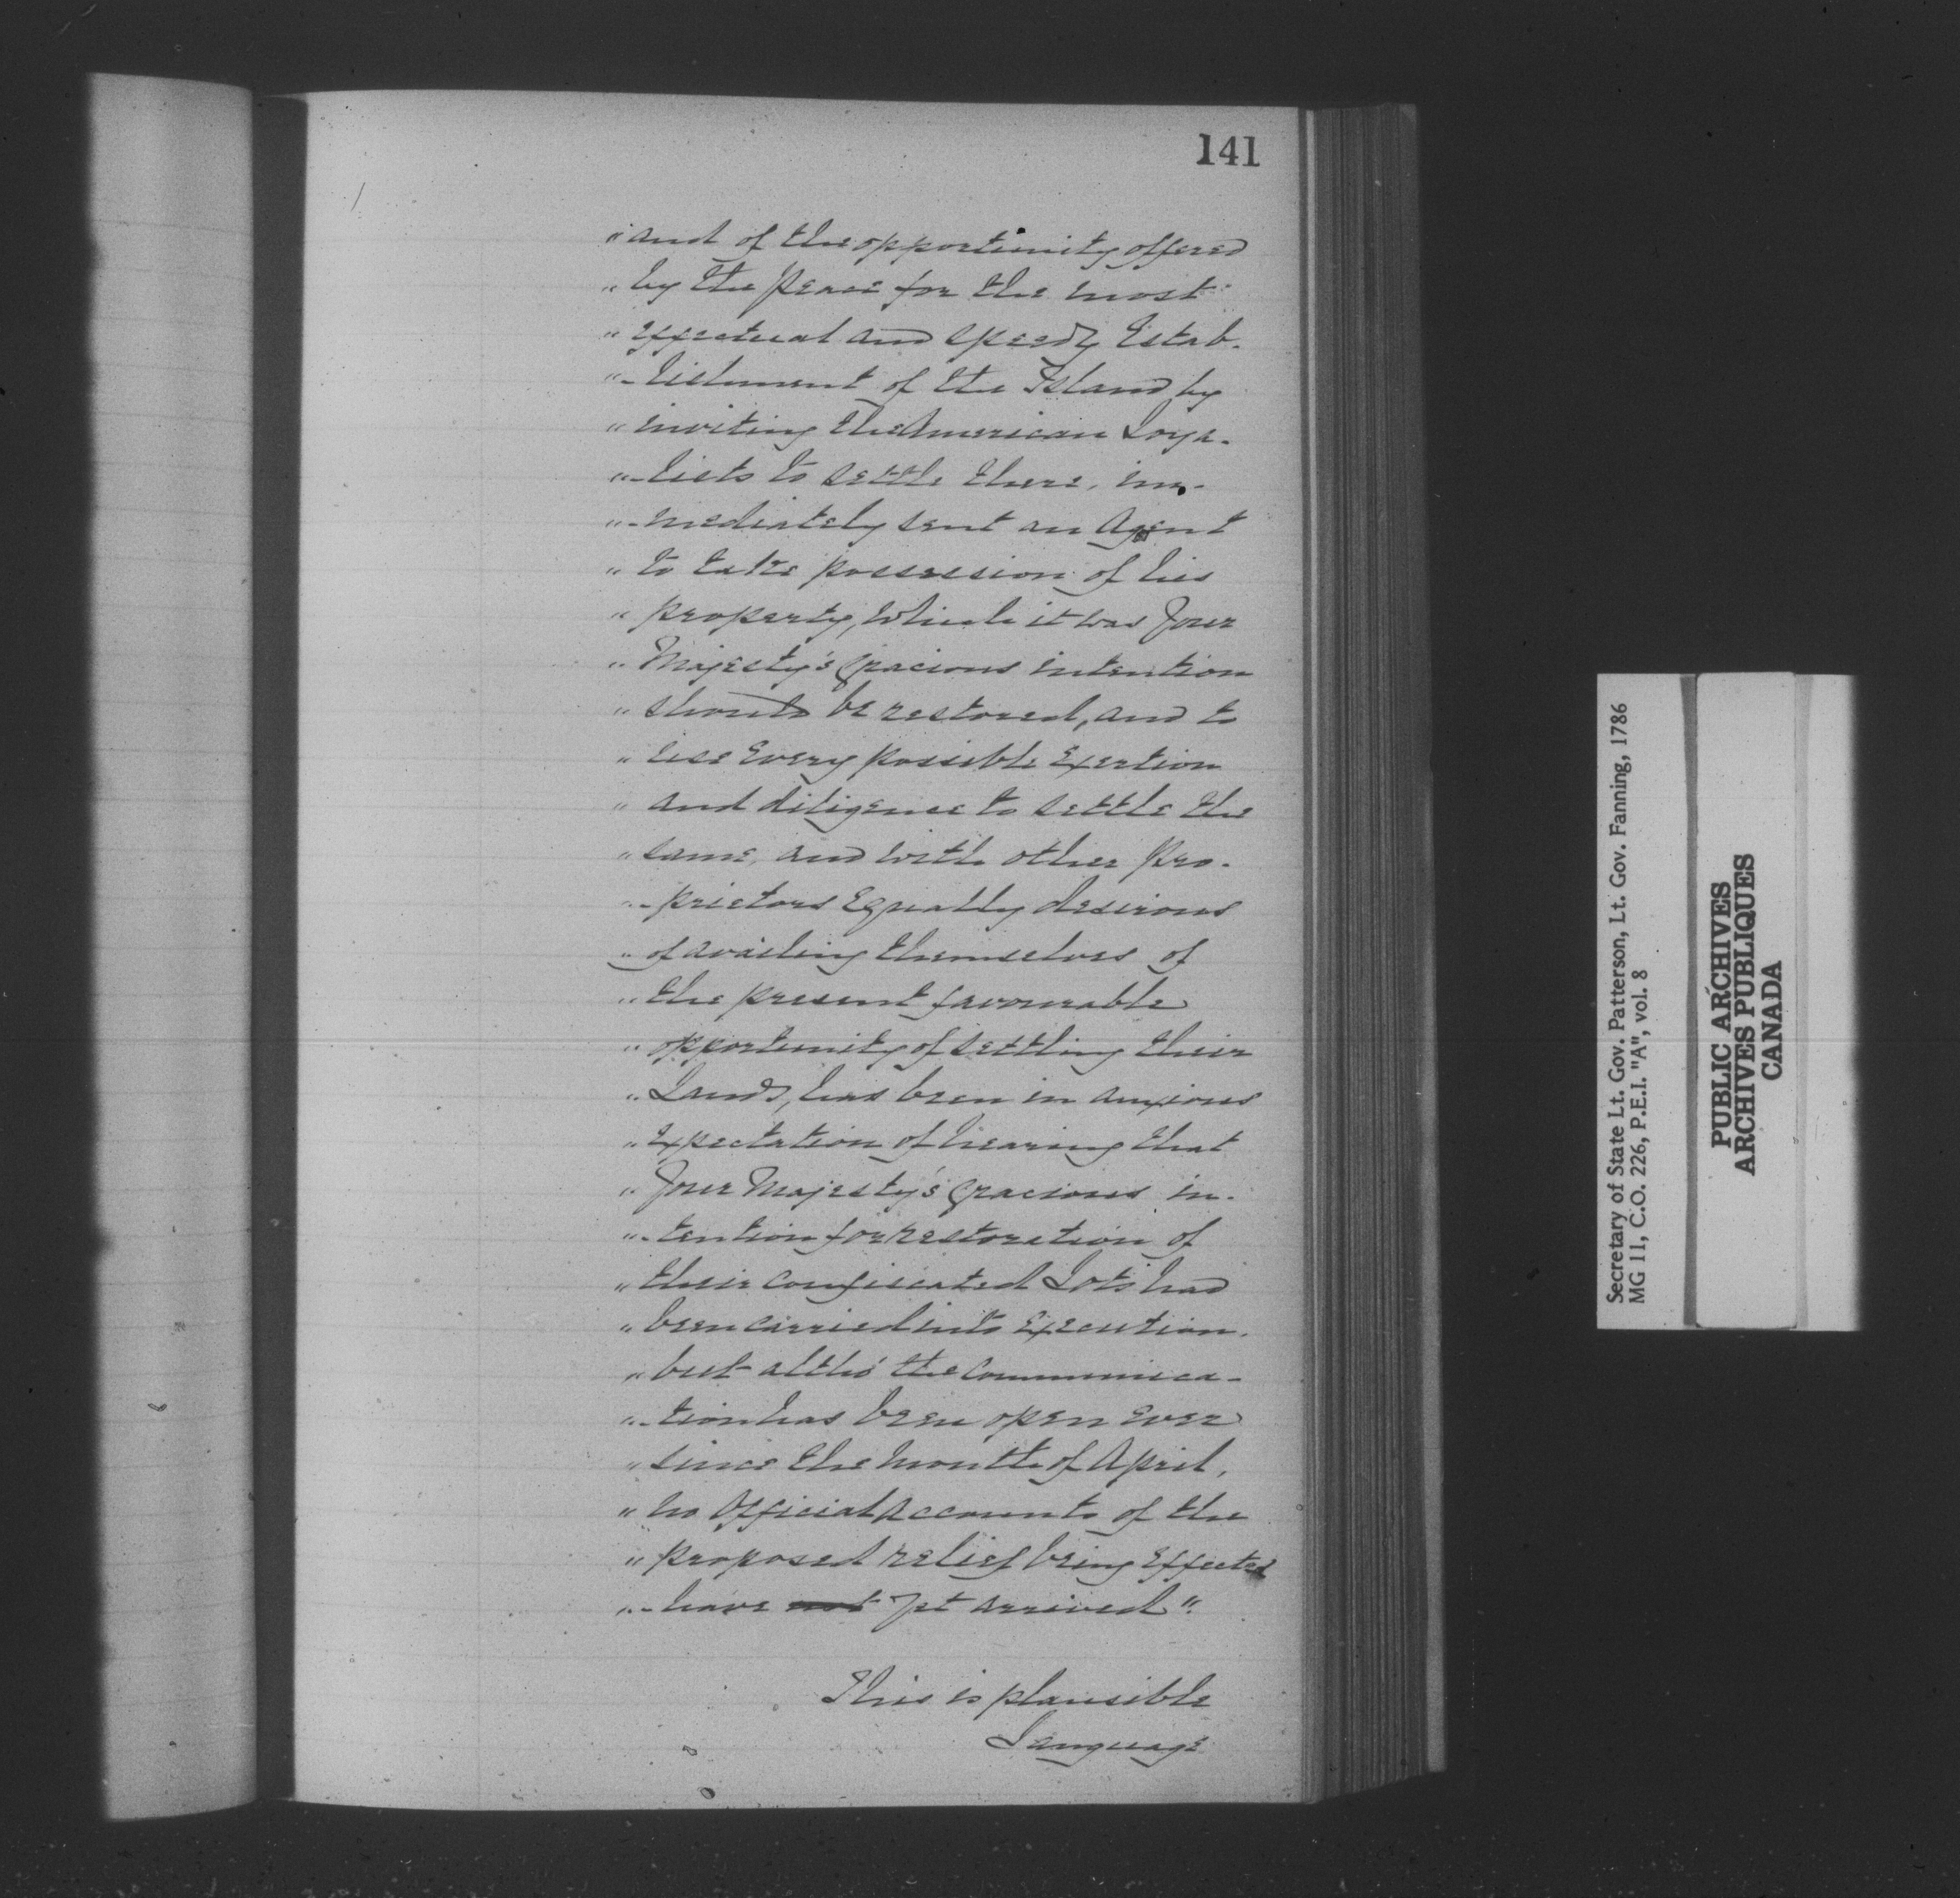 141
" and of the opportunity offered
" by the peace for the most
" effectual and speedy Estab-
"-lishment of the Island by
" inviting the American Loya-
"-lists to settle there, im-
"-mediately sent an Agent
" to take possession of his
" property, which it was Your
" Majesty's Gracious intention
" should be restored, and to
" use Every possible Exertion
" and diligence to settle the
" same, and with other Pro-
"-prietors Equally desirous
" of availing themselves of
" the present favourable
" opportunity of settling their
" Lands, has been in anxious
" Expectation of hearing that
" Your Majesty's Gracious in-
"-tention for restoration of
" their confiscated Lots had
" been carried into Execution.
" but altho' the Communica-
"-tion has been open ever
" since the month of April,
" no Official Accounts of the
" proposed relief being Effected
"-have not yet arrived".
This is plausible
Language
Secretary of State Lt. Gov. Patterson, Lt. Gov. Fanning, 1786
MG 11, C.O. 226, P.E.I. "A", vol. 8
PUBLIC ARCHIVES
ARCHIVES PUBLIQUES
CANADA